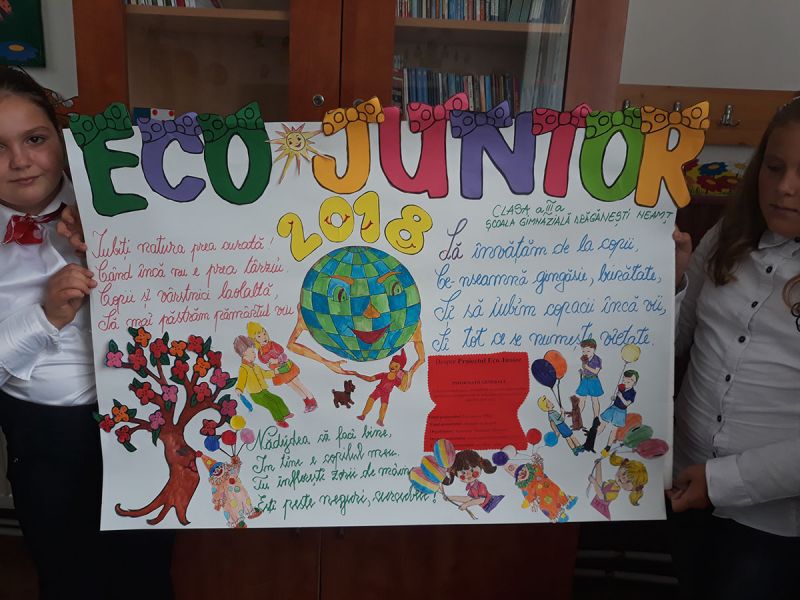 ECO JUNIOR
2018
CLASA a III a
ȘCOALA GIMNAZIALĂ DRĂGĂNEȘTI NEAMȚ
Iubiți natura prea curată!
Când încă nu e prea târziu.
Copii și vârstnici laolaltă,
Să mai păstrăm pământul viu
Să învățăm de la copii,
Ce-nseamnă gingășie, bunătate,
Și să iubim copacii încă vii,
Și tot ce se numește vietate.
Despre Proiectul Eco-Junior
INFORMAȚII GENERALE
Nădejdea că faci bine,
În tine e copilul meu.
Tu înflorești zorii de mâine
Ești peste neguri, curcubeu!